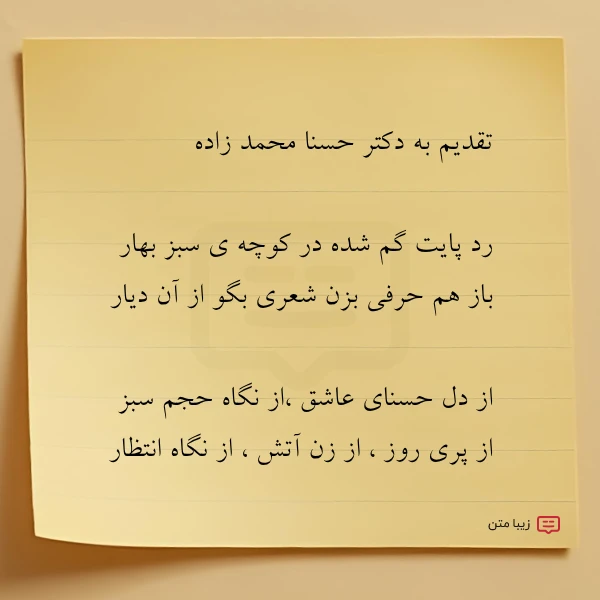 تقدیم به دکتر حسنا محمد زاده
رد پایت گم شده در کوچه ی سبز بهار
باز هم حرفی بزن شعری بگو از آن دیار
از دل حسنای عاشق ،از نگاه حجم سبز
از پری روز ، از زن آتش ، از نگاه انتظار
زیبا متن